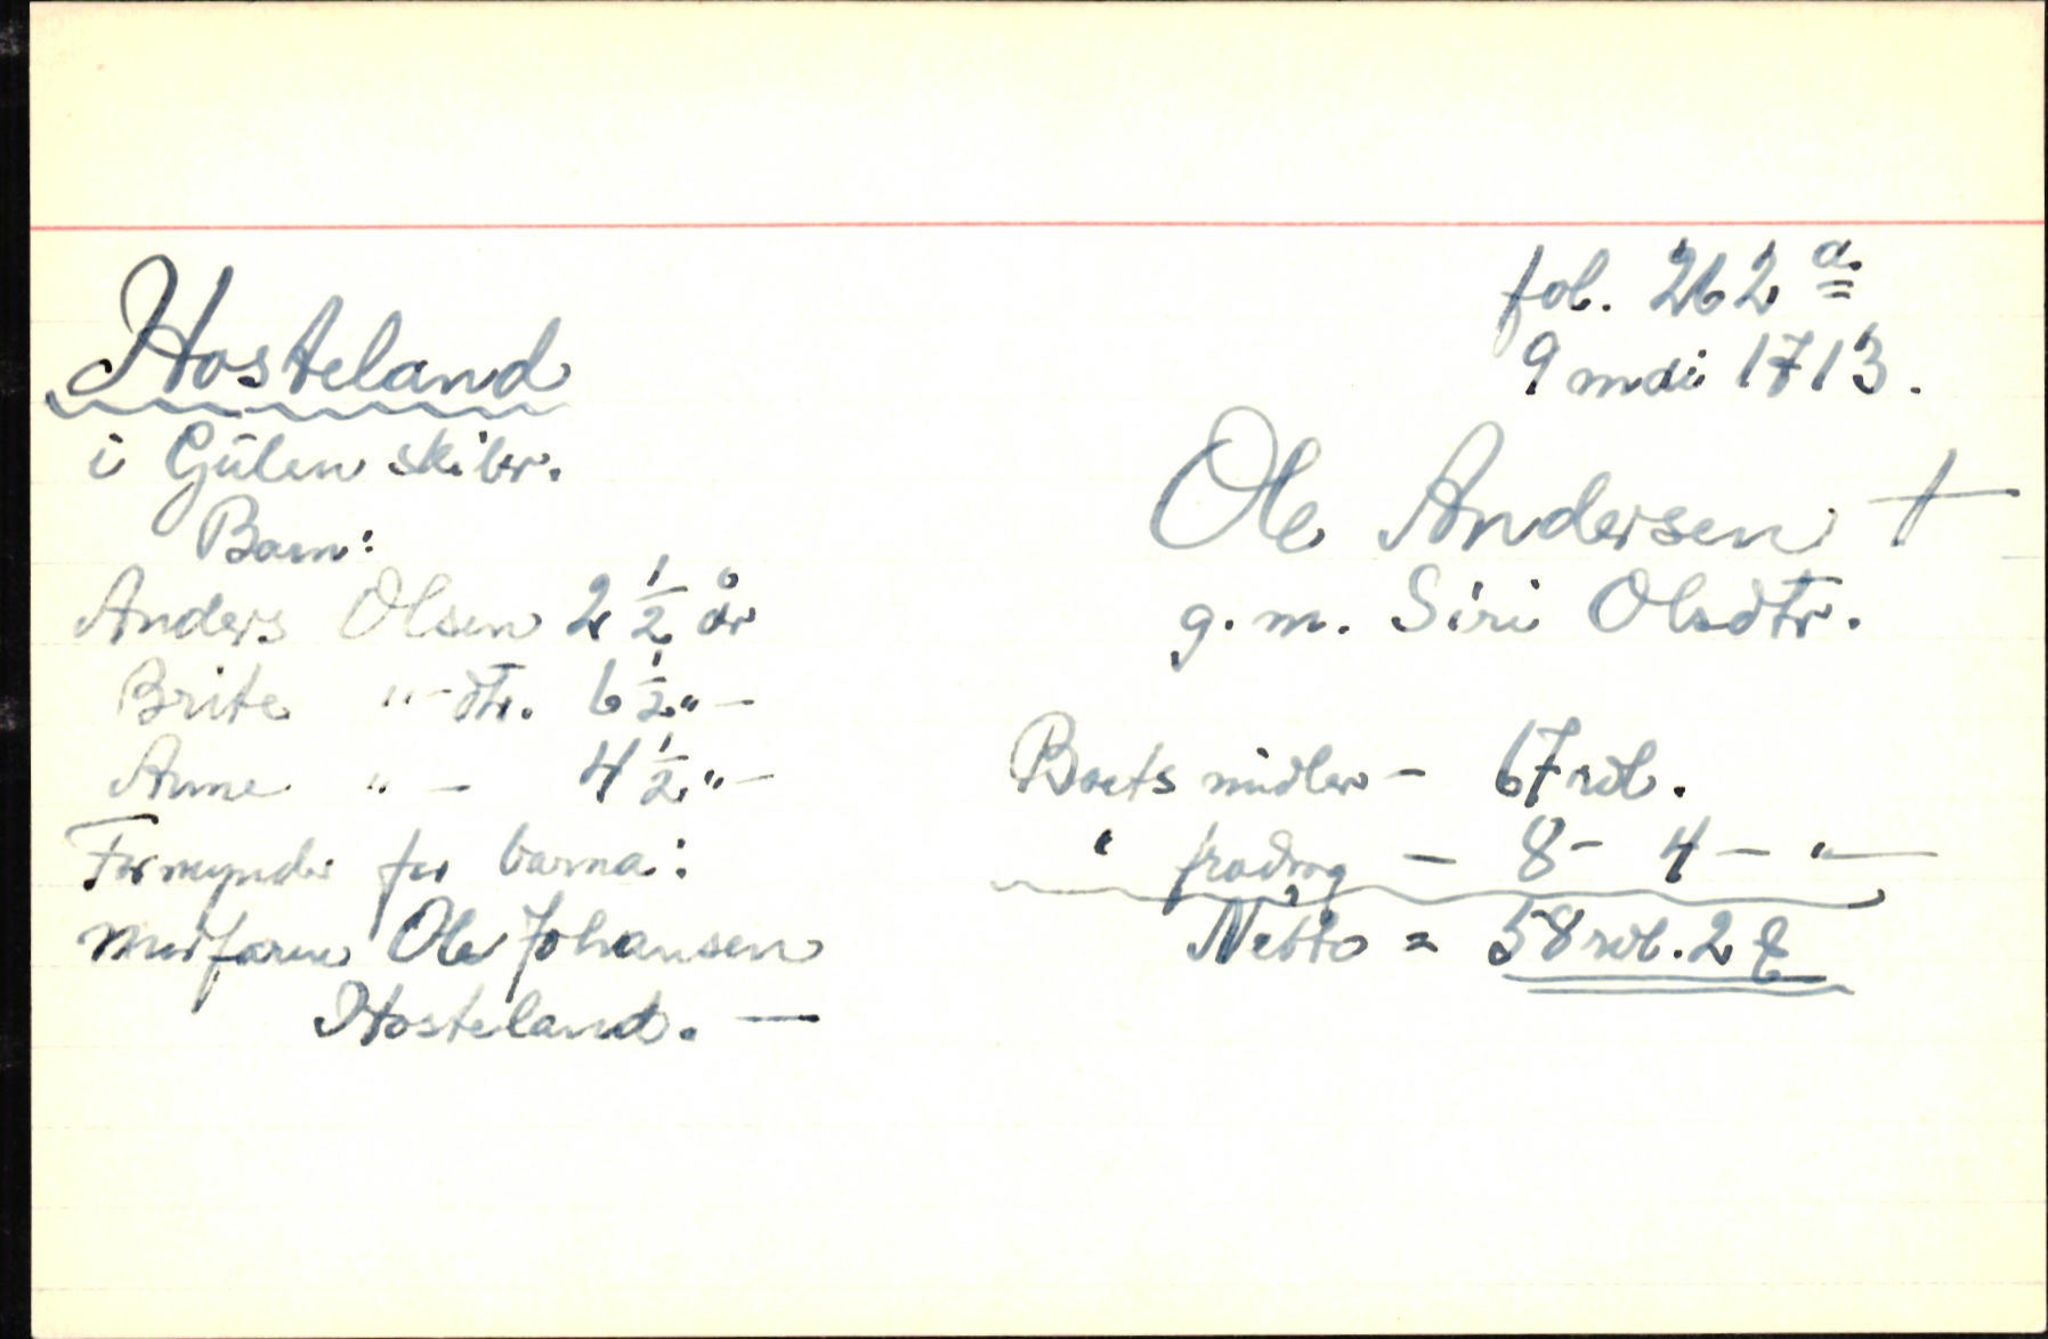 fol. 262 a.
9 mai 1713.
Hosteland
i Gulen skibr.
Ole Andersen †
g. m. Siri Olsdtr.
Barn:
Anders Olsen 2 1/2 år
Brite "- dtr. 6 1/2 "-
Anne "- 4 1/2 "-
Formynder for barna:
morfaren Ole Johansen
Hosteland. —
Boets midler - 67 rdl.
" fradrag - 8 - 4 - "-
Netto = 58 rdl. 2